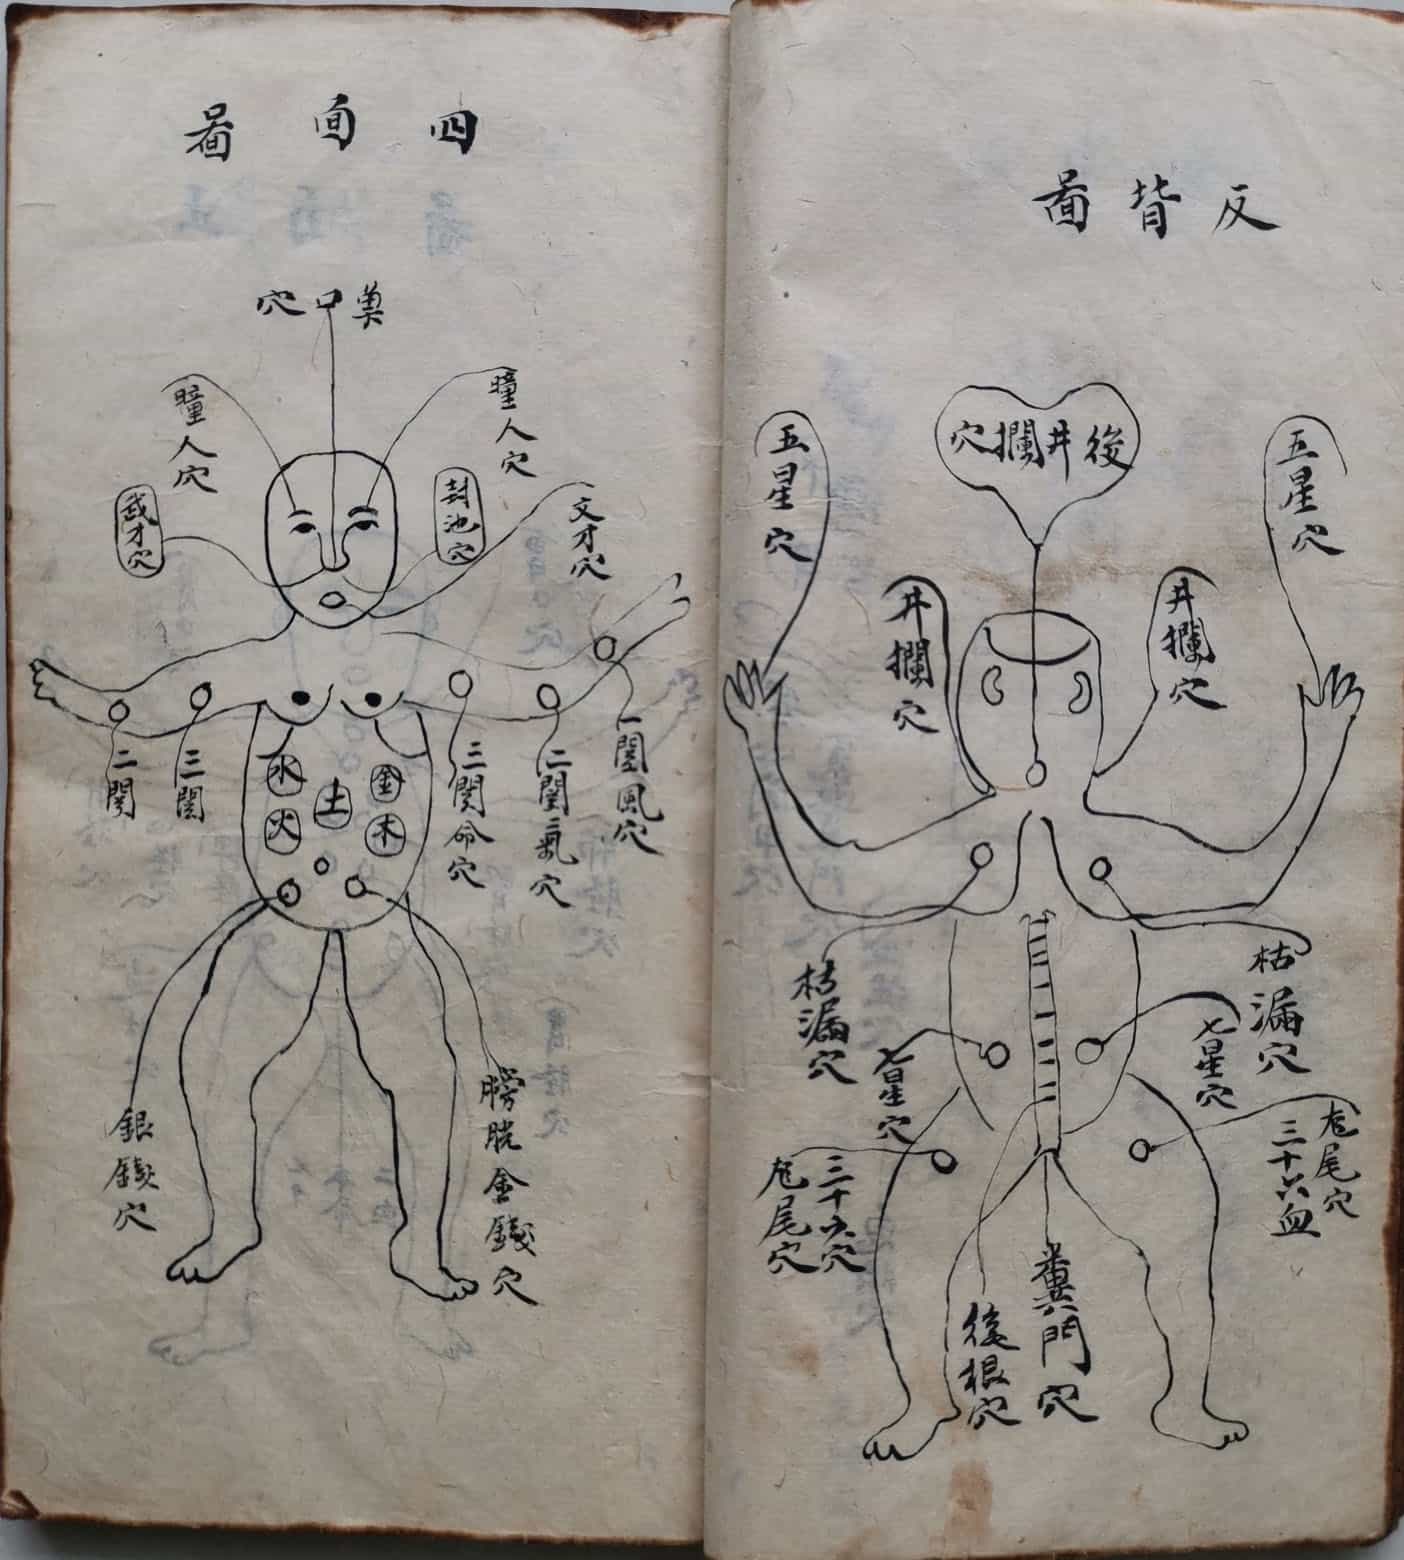 反背圖
後井欄穴
五星穴
五星穴
井欄穴
井欄穴
枯漏穴
枯漏穴
七星穴
七星穴
尾穴
三十六血
三十六穴
尾穴
糞門穴
後根穴
四面圖
口穴
瞳人穴
瞳人穴
封池穴
文才穴
武才穴
一関風穴
二関氣穴
三関命穴
三関
二関
金
木
土
水
火
膀胱金錢穴
銀錢穴